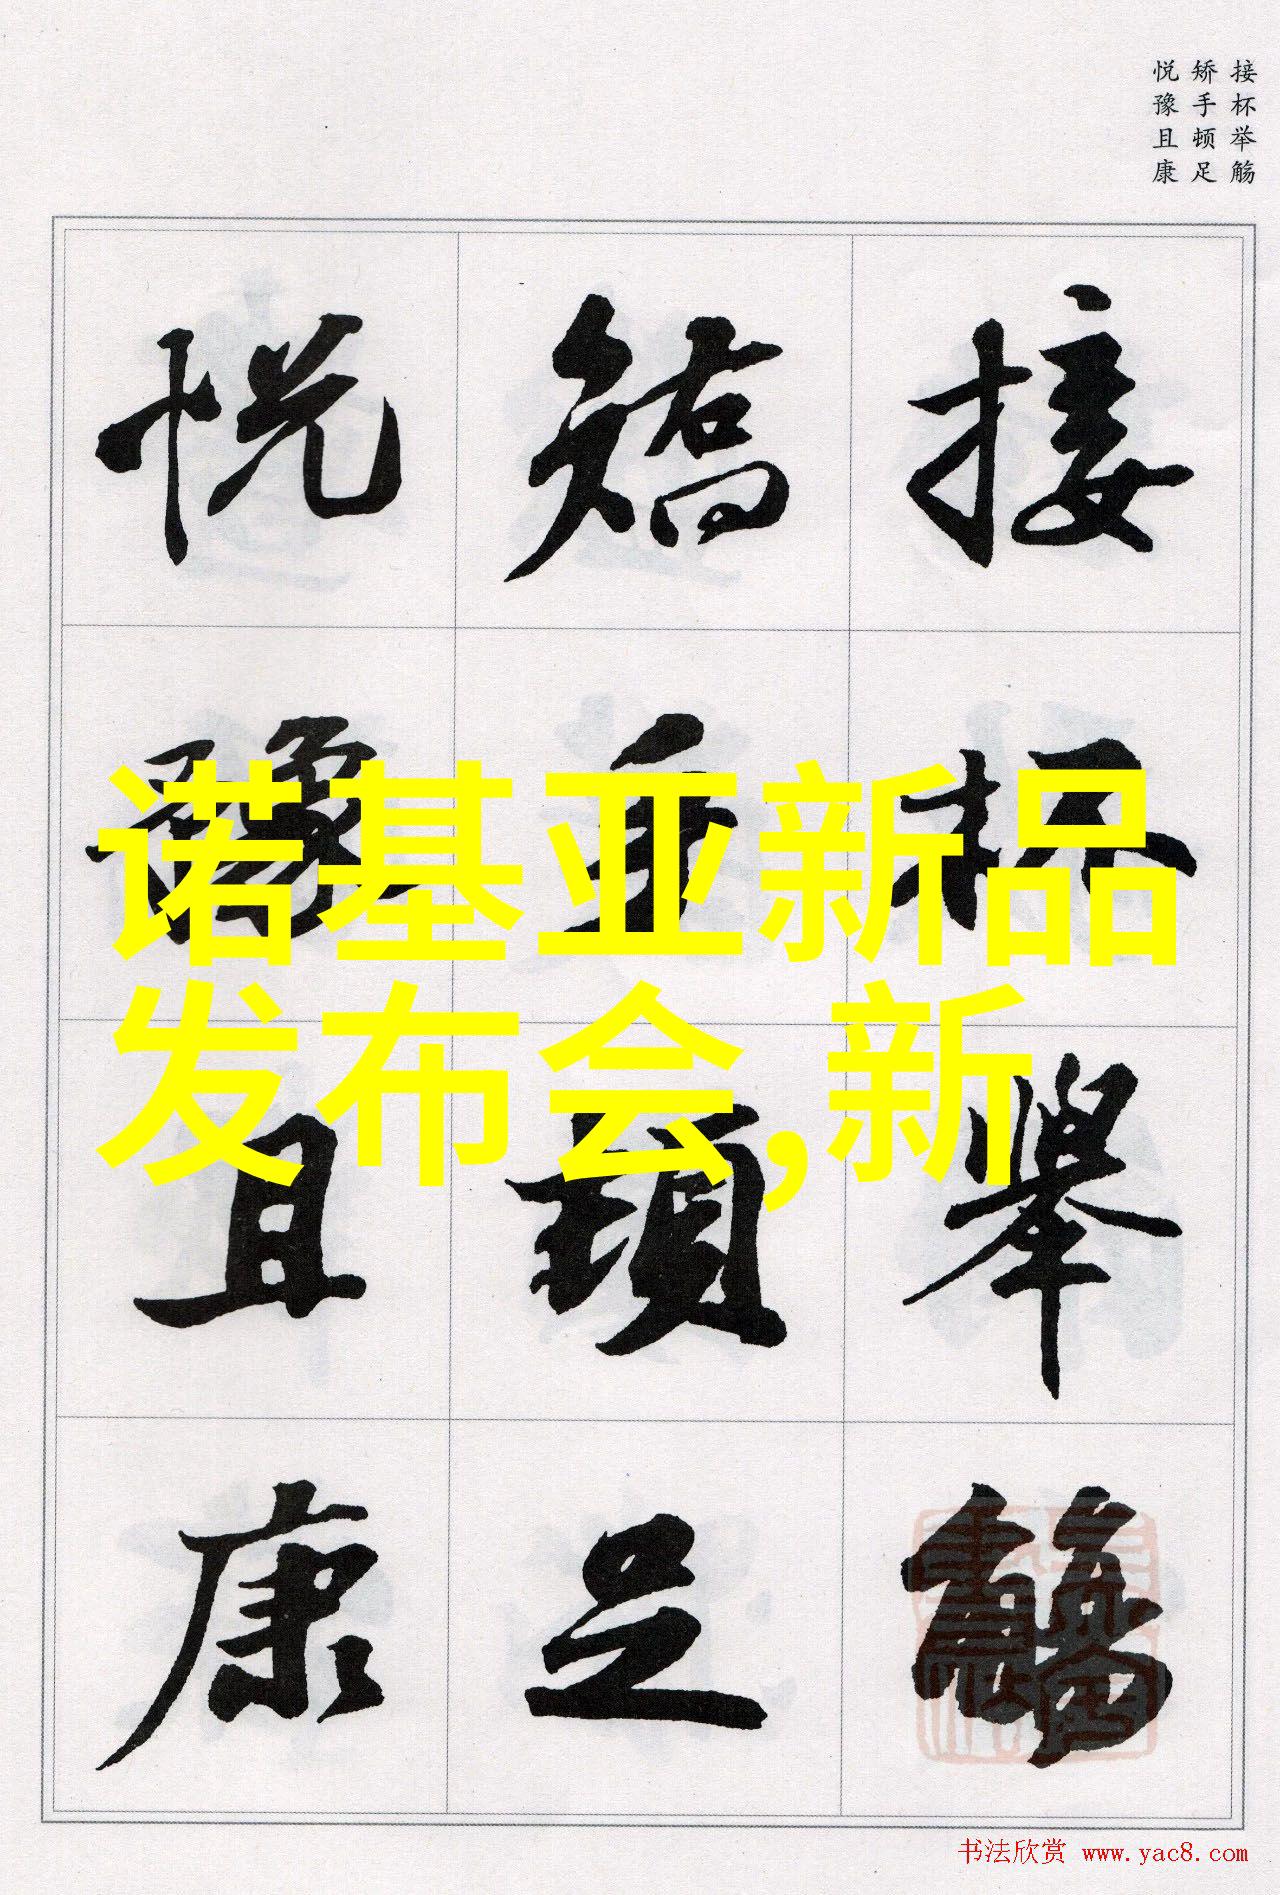 接杯举觞
矫手顿足
悦豫且康
接杯舉觴
矯手頓足
悦豫且康
诺基亚新品
发布会,新
书法欣赏 www.yac8.com